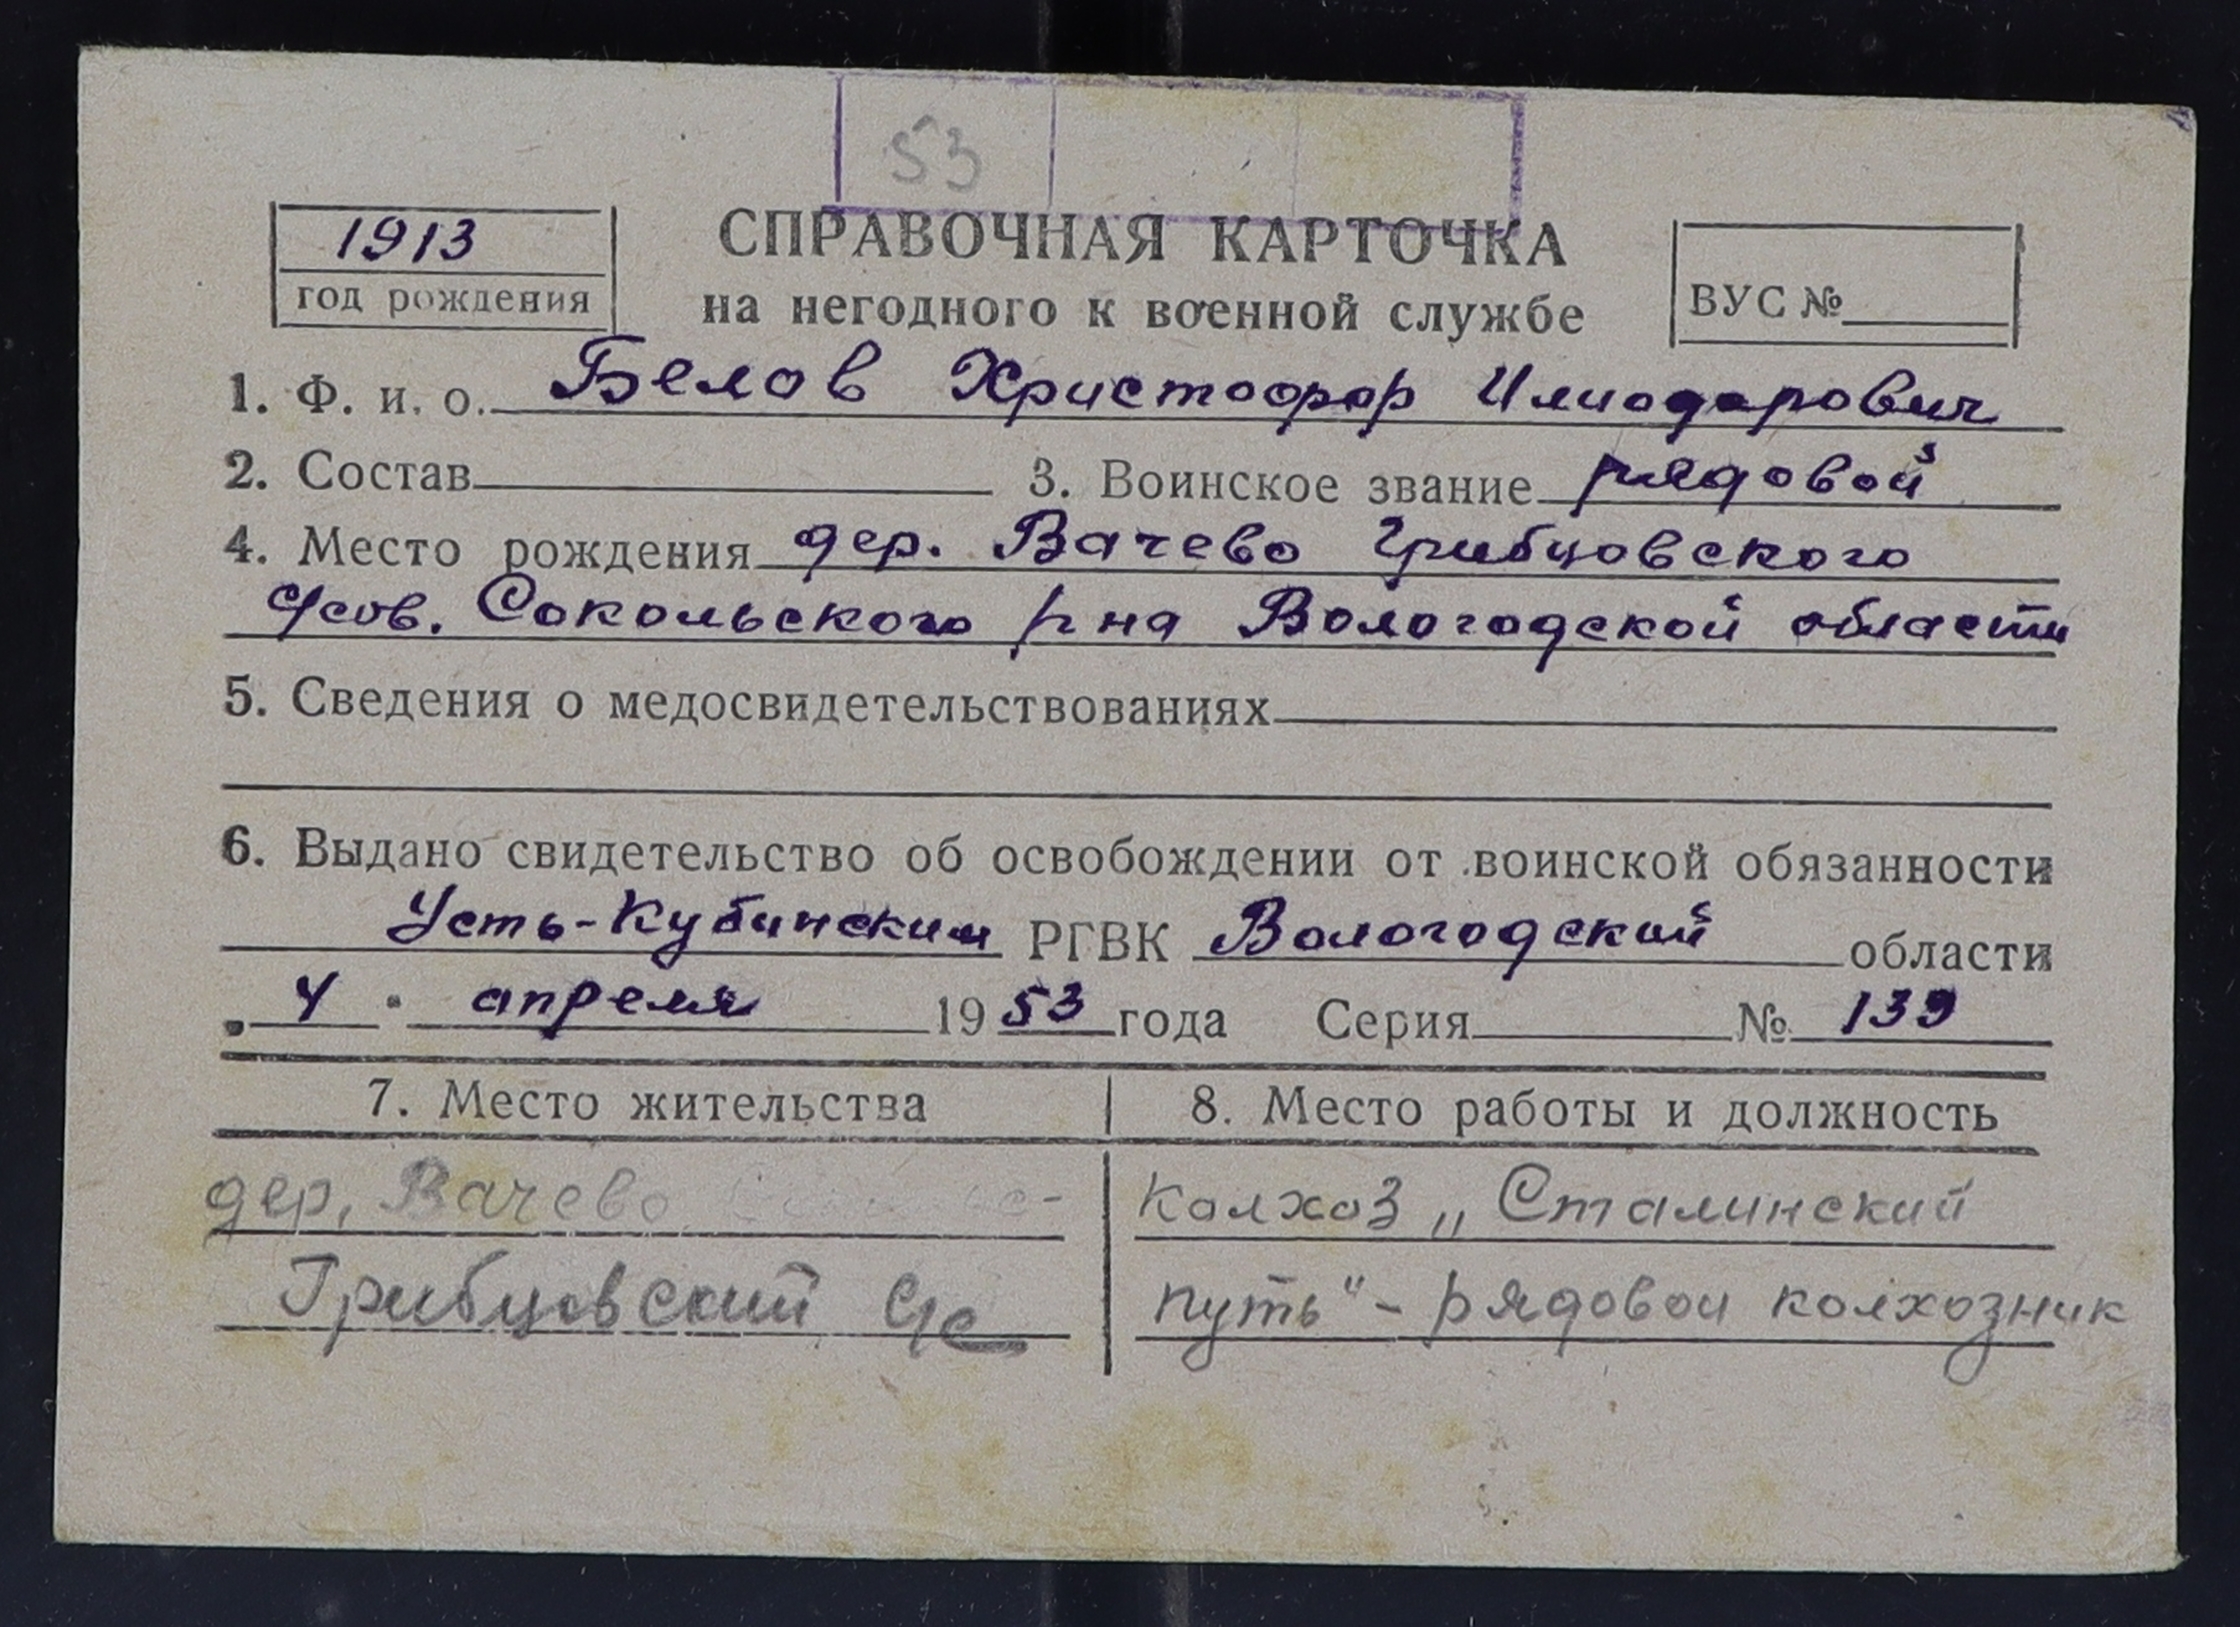 53
1913
год рождения
СПРАВОЧНАЯ КАРТОЧКА
на негодного к военной службе
ВУС №
1. Ф. и. о. Белов Христофор Илиодорович
2. Состав 3. Воинское звание рядовой
4. Место рождения дер. Вачево Грибцовского
с/сов. Сокольского р на Вологодской области
5. Сведения о медосвидетельствованиях
6. Выдано свидетельство об освобождении от воинской обязанности
Усть-Кубинским РГВК Вологодской области
„ 4 " апреля 19 53 года Серия № 139
7. Место жительства 8. Место работы и должность
дер. Вачево
Грибцовский с/с
колхоз „Сталинский
путь" - рядовой колхозник